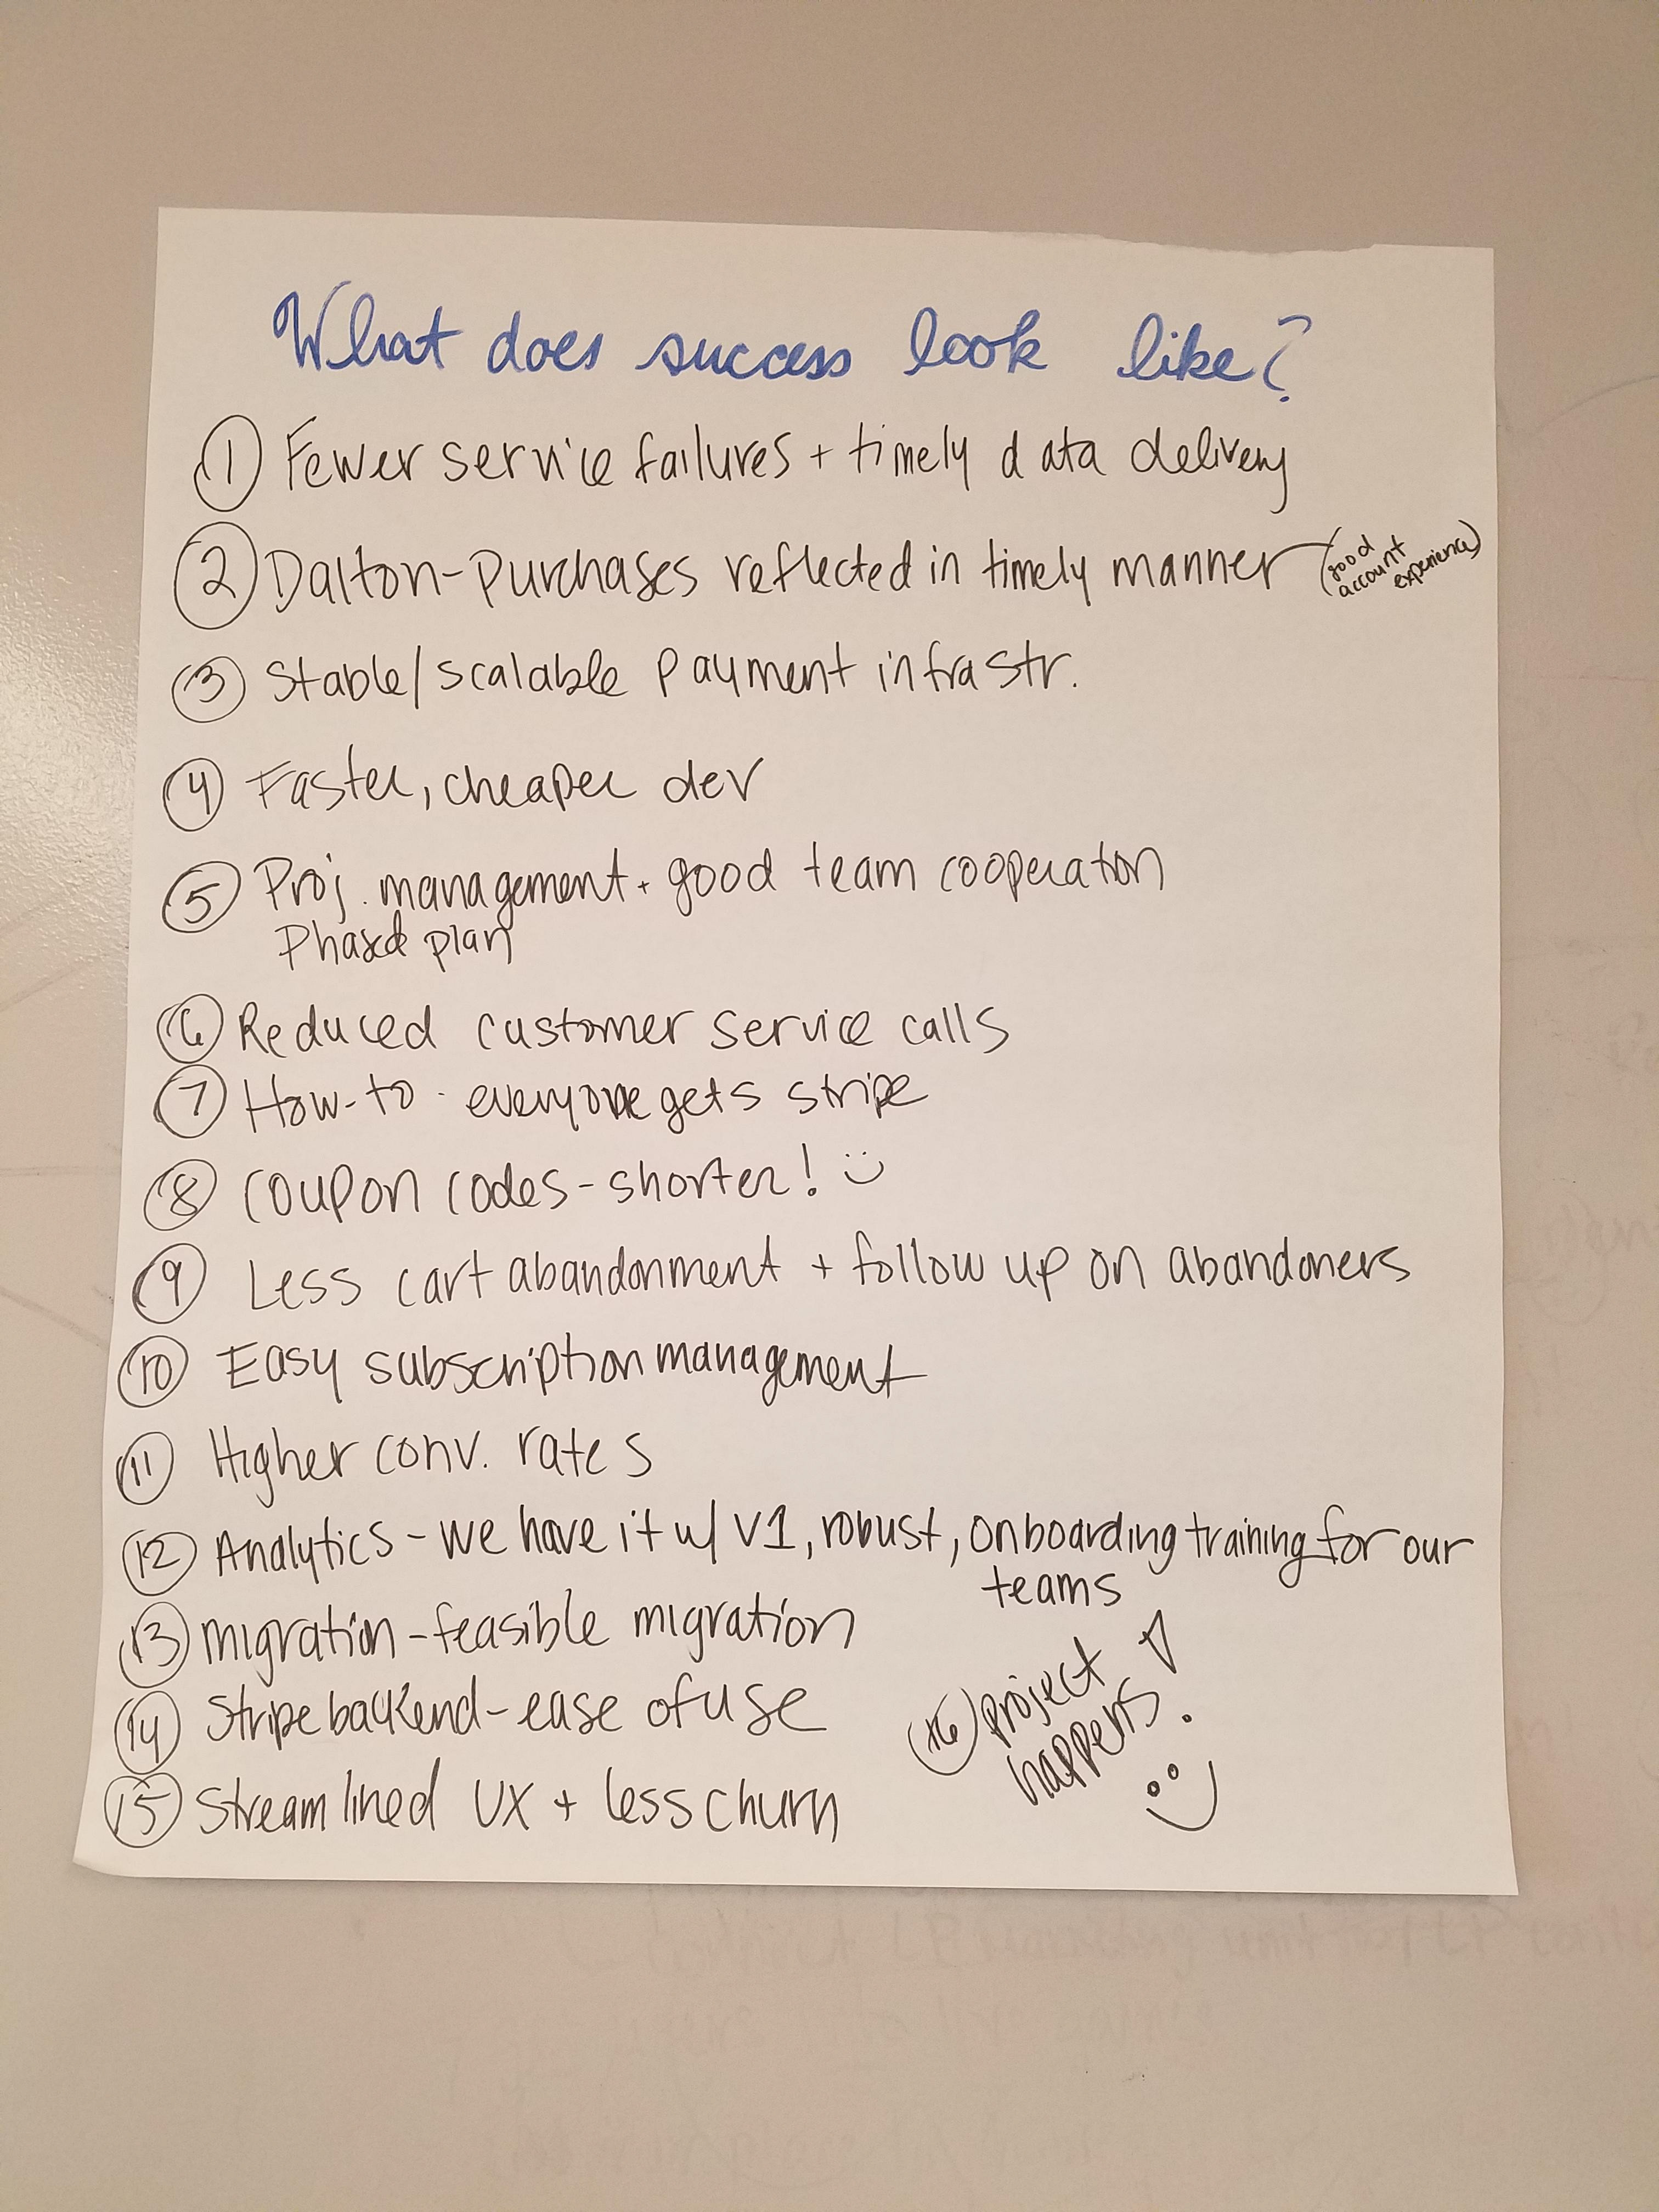 What does success look like?
1 Fewer service failures + timely data delivery
2 Dalton-Purchases reflected in timely manner (good account experience)
3 Stable/scalable payment infrastr.
4 Faster, cheaper dev
5 Proj. management + good team cooperation
Phased plan
6 Reduced customer service calls
7 How-to - everyone gets stripe
8 Coupon codes - shorter! :)
9 Less cart abandonment + follow up on abandoners
10 Easy subscription management
11 Higher conv. rates
12 Analytics - we have it w/ V1, robust, onboarding training for our
teams
13 Migration - feasible migration
14 Stripe backend - ease of use
15 Streamlined UX + less churn
16 project
happens!